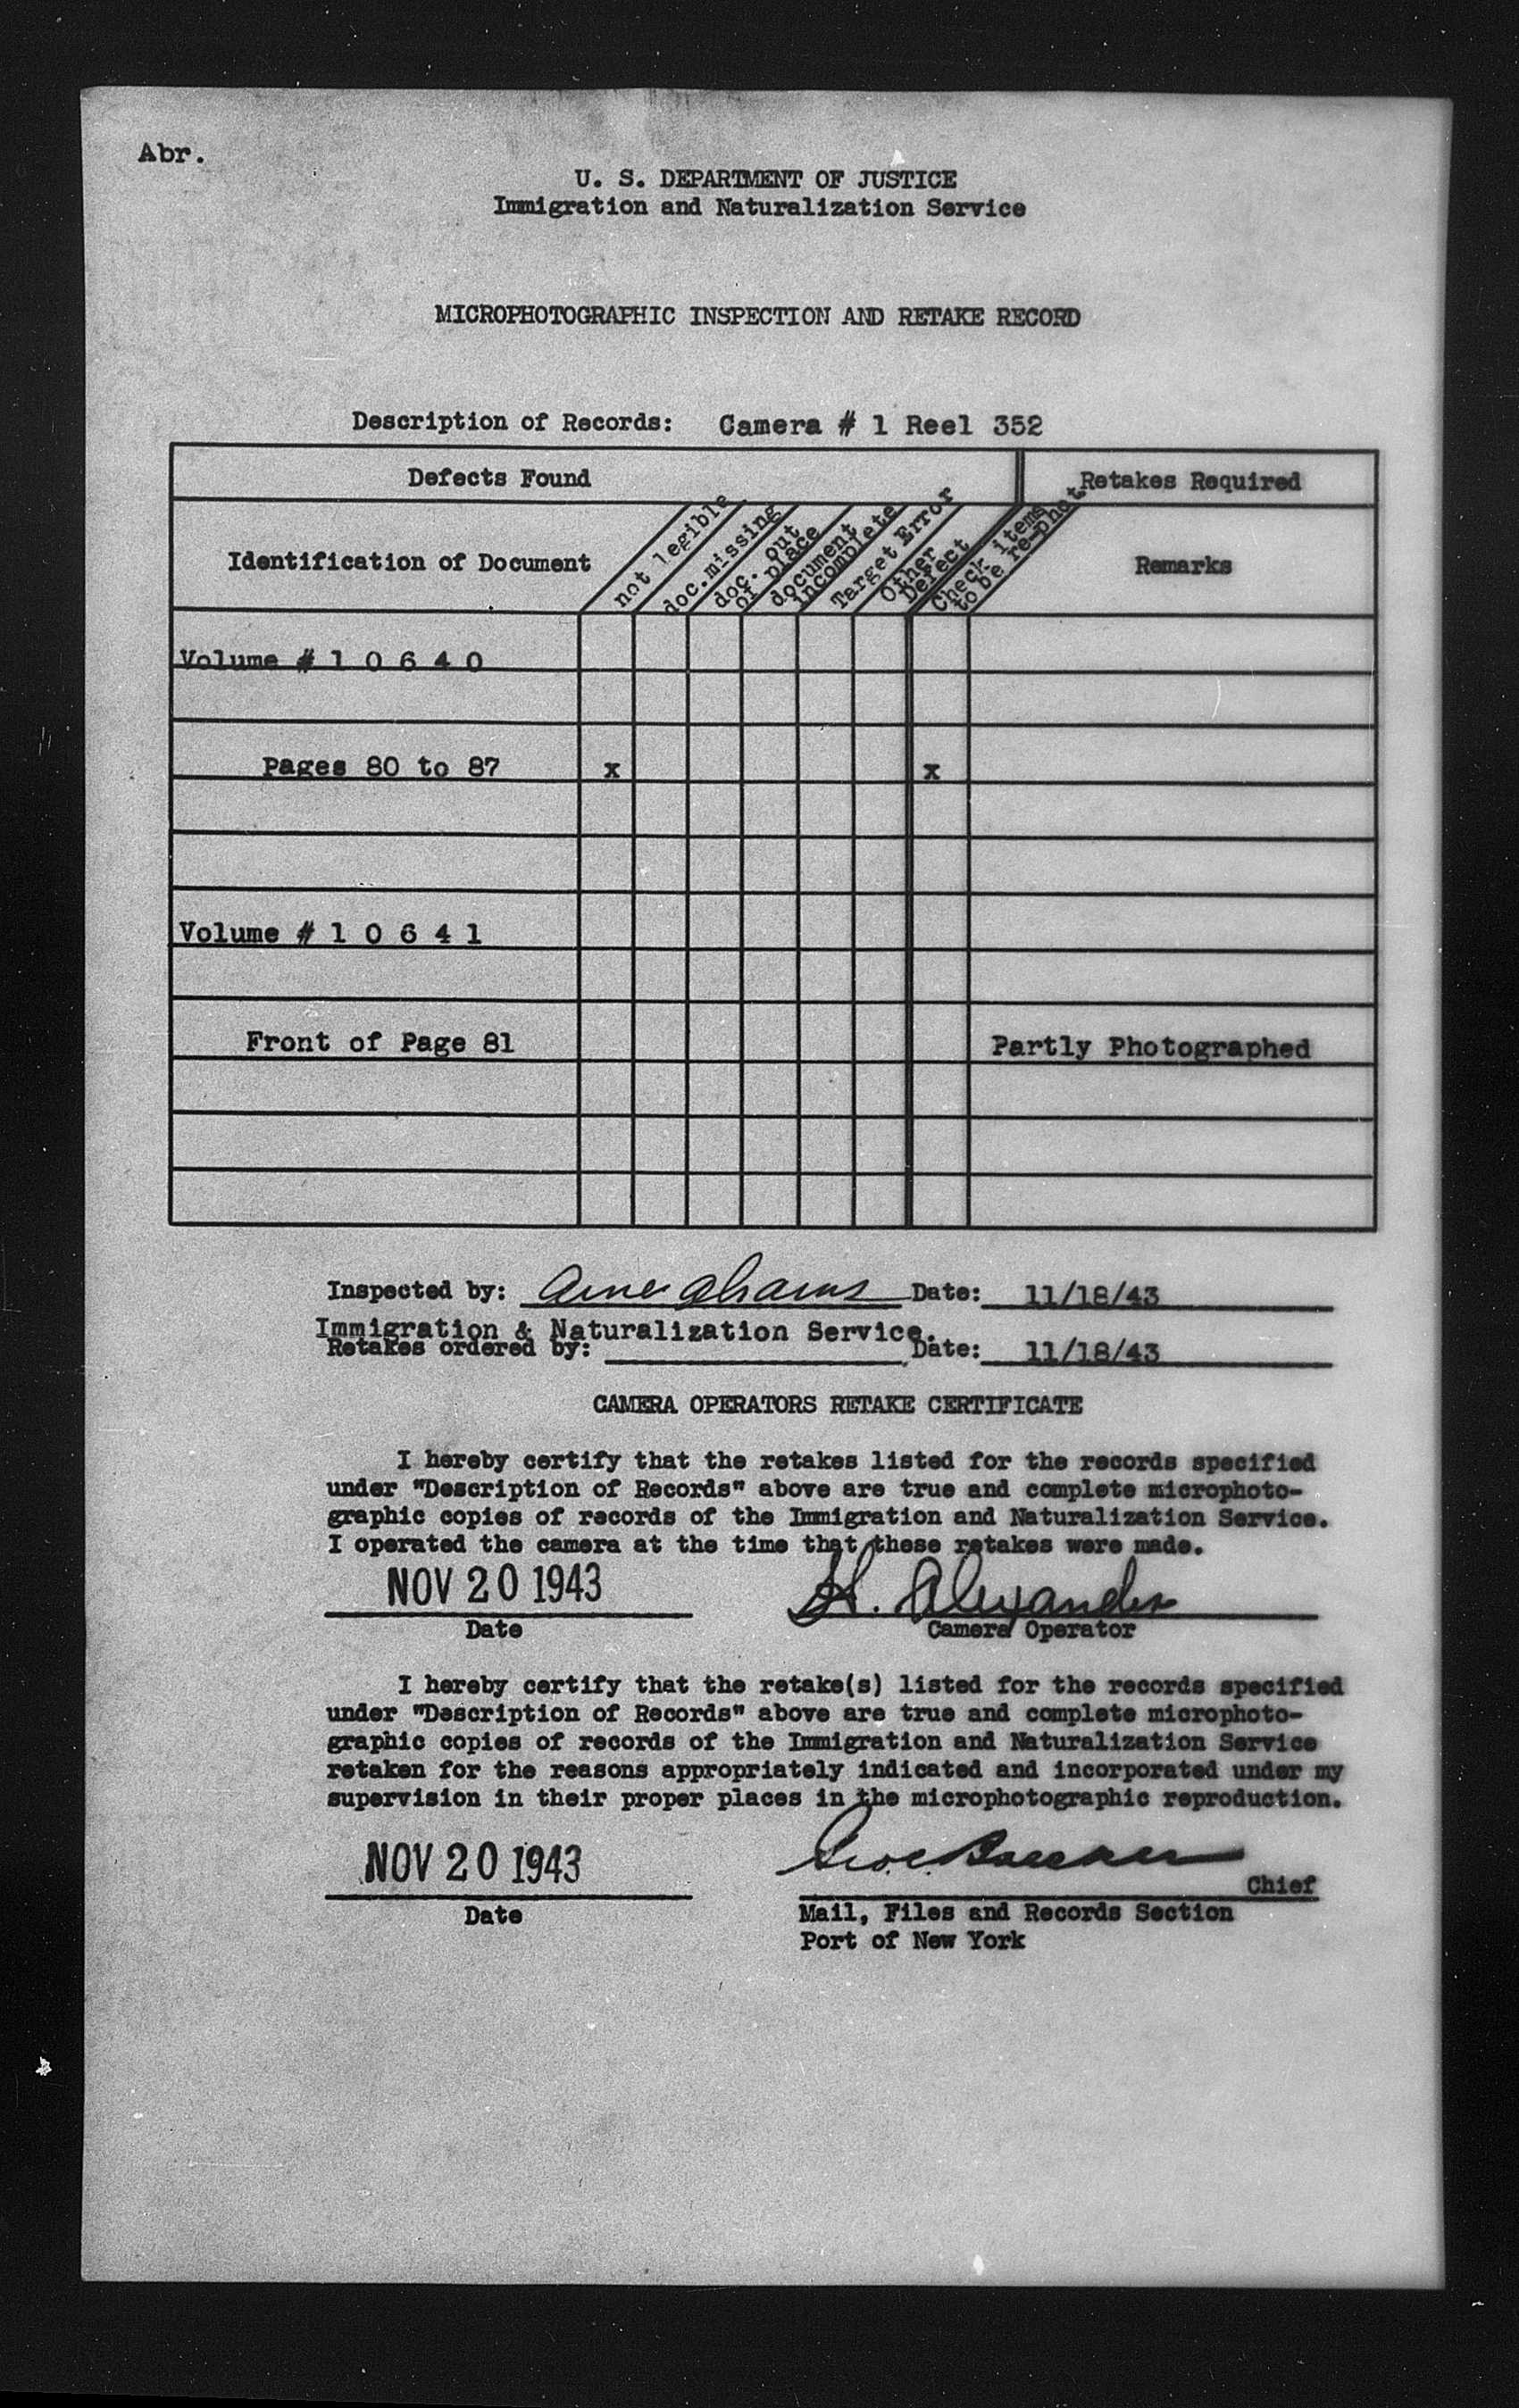 Abr.
U. S. DEPARTMENT OF JUSTICE
Immigration and Naturalization Service
MICROPHOTOGRAPHIC INSPECTION AND RETAKE RECORD
Description of Records: Camera # 1 Reel 352
Defects Found
Retakes Required
Identification of Document
not legible
doc.missing
doc. out
of place
document
incomplete
Target Error
Other
Defect
Check items
to be re-phot
Remarks
Volume # 1 0 6 4 0
Pages 80 to 87 x x
Volume # 1 0 6 4 1
Front of Page 81 Partly Photographed
Inspected by: Date: 11/18/43
Immigration & Naturalization Service.
Retakes ordered by: Date: 11/18/43
CAMERA OPERATORS RETAKE CERTIFICATE
I hereby certify that the retakes listed for the records specified
under "Description of Records" above are true and complete microphoto-
graphic copies of records of the Immigration and Naturalization Service.
I operated the camera at the time that these retakes were made.
NOV 20 1943 H. Alexander
Date Camera Operator
I hereby certify that the retake(s) listed for the records specified
under "Description of Records" above are true and complete microphoto-
graphic copies of records of the Immigration and Naturalization Service
retaken for the reasons appropriately indicated and incorporated under my
supervision in their proper places in the microphotographic reproduction.
NOV 20 1943
Chief
Date Mail, Files and Records Section
Port of New York